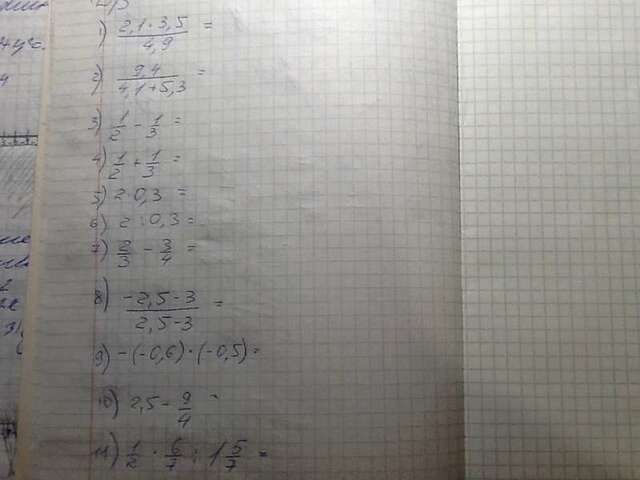 1) 2,1 · 3,5 / 4,9 =
2) 9,4 / 4,1 + 5,3 =
3) 1/2 - 1/3 =
4) 1/2 + 1/3 =
5) 2 · 0,3 =
6) 2 : 0,3 =
7) 2/3 - 3/4 =
8) -2,5 - 3 / 2,5 - 3 =
9) -(-0,6) · (-0,5) =
10) 2,5 - 9/4 =
11) 1/2 · 6/7 : 1 5/7 =